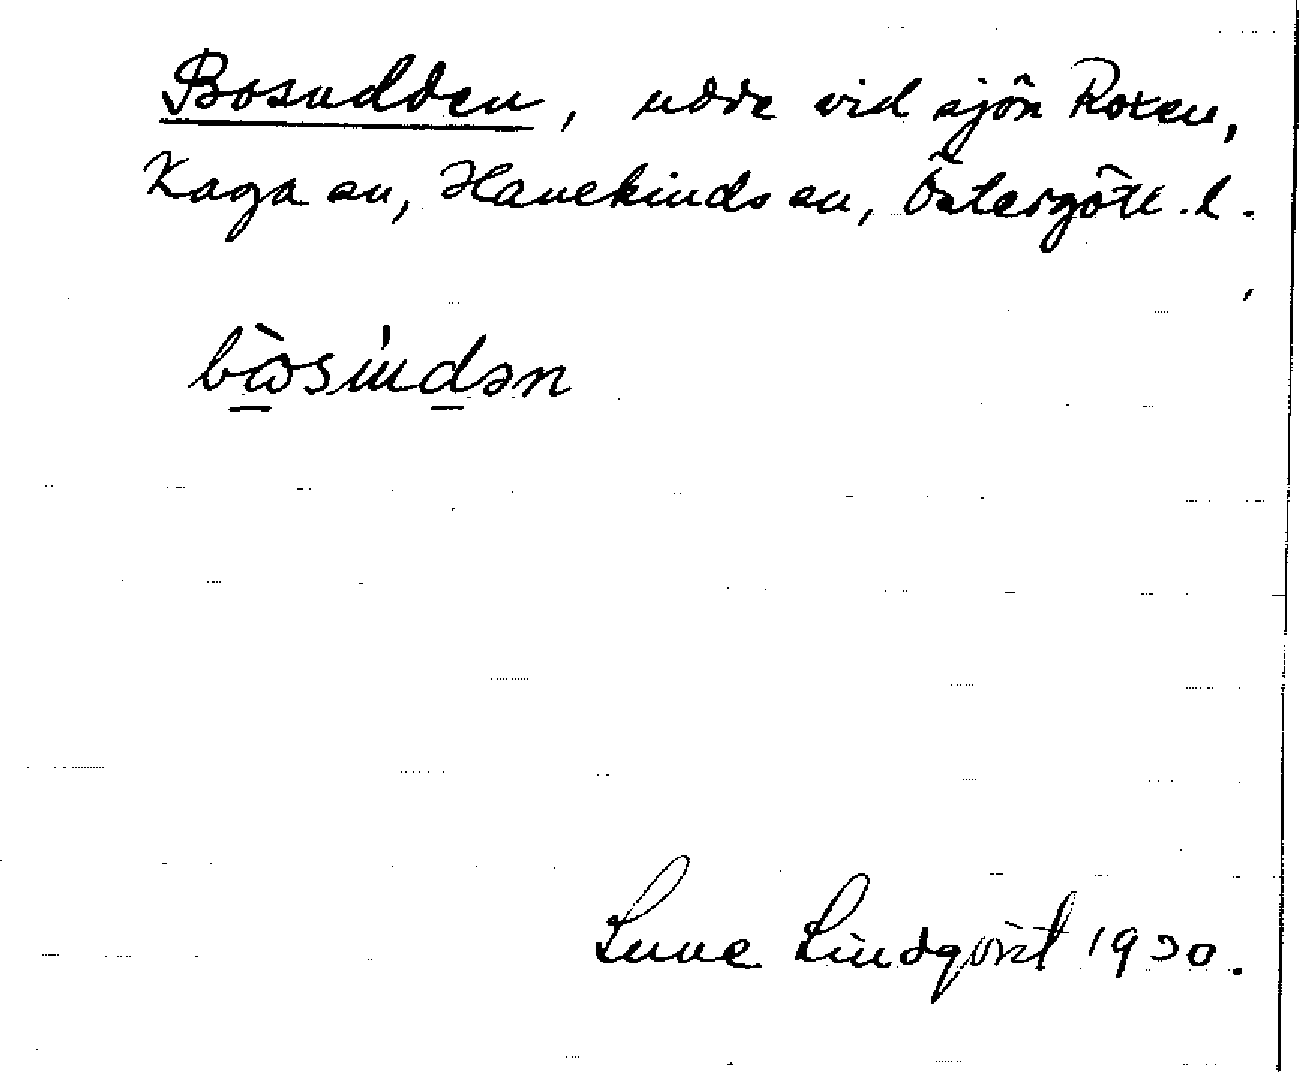 Bosudden, udde vid sjön Roxen,
Kaga sn, Hanekinds sn, Östergötl. l.
Sune Lindqvist 1930.